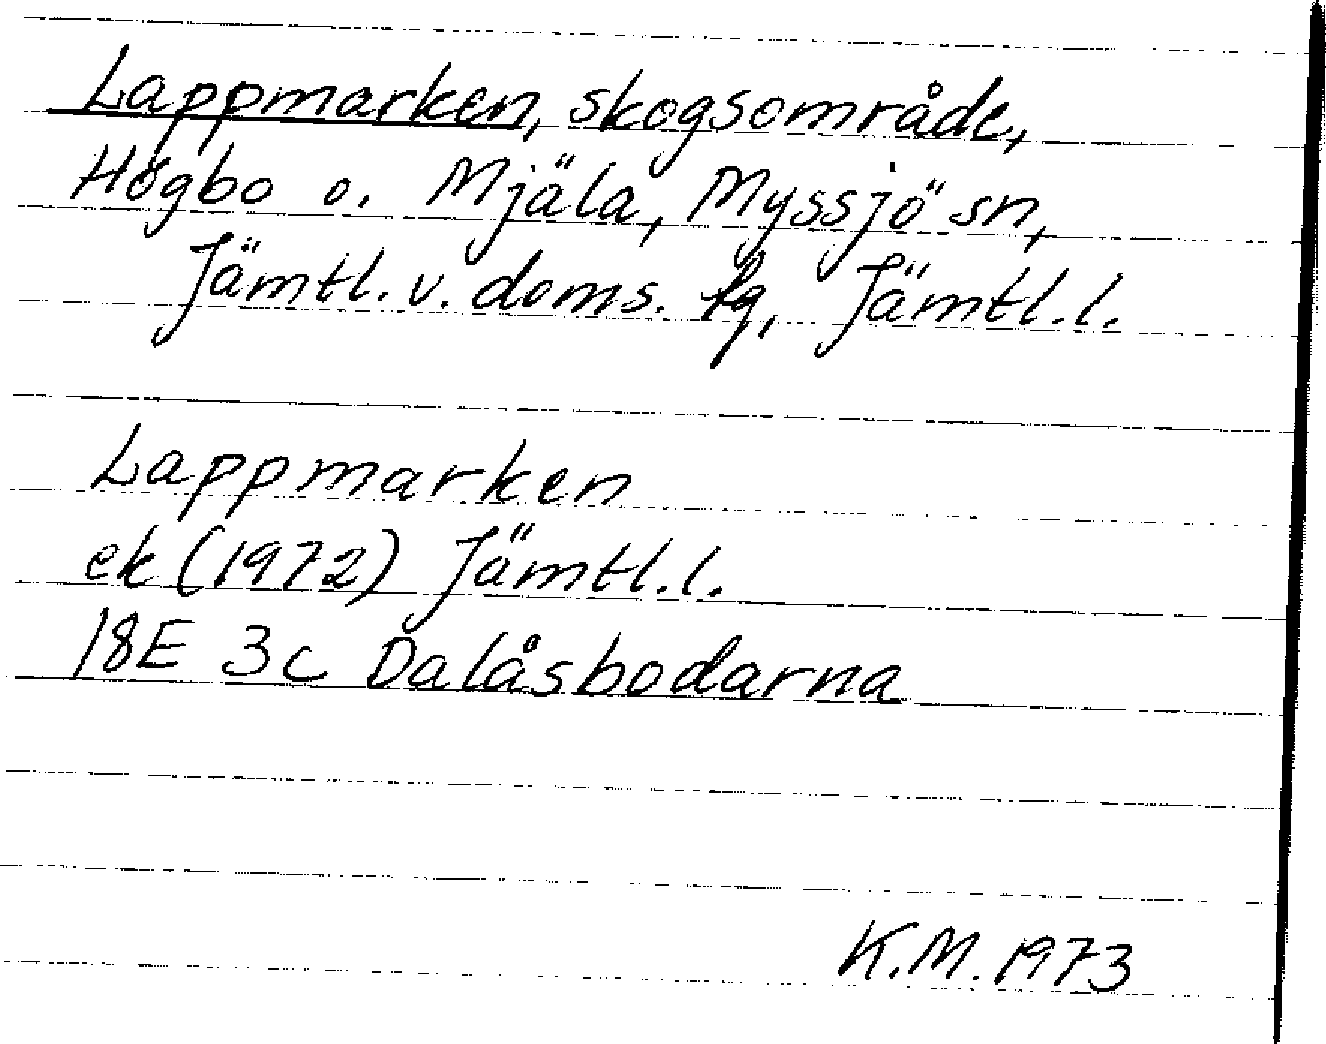 Lappmarken, skogsområde,
Högbo o. Mjäla, Myssjö sn,
Jämtl. v. doms. tg, Jämtl. l.
Lappmarken
ek (1972) Jämtl. l.
18E 3c Dalåsbodarna
K.M. 1973